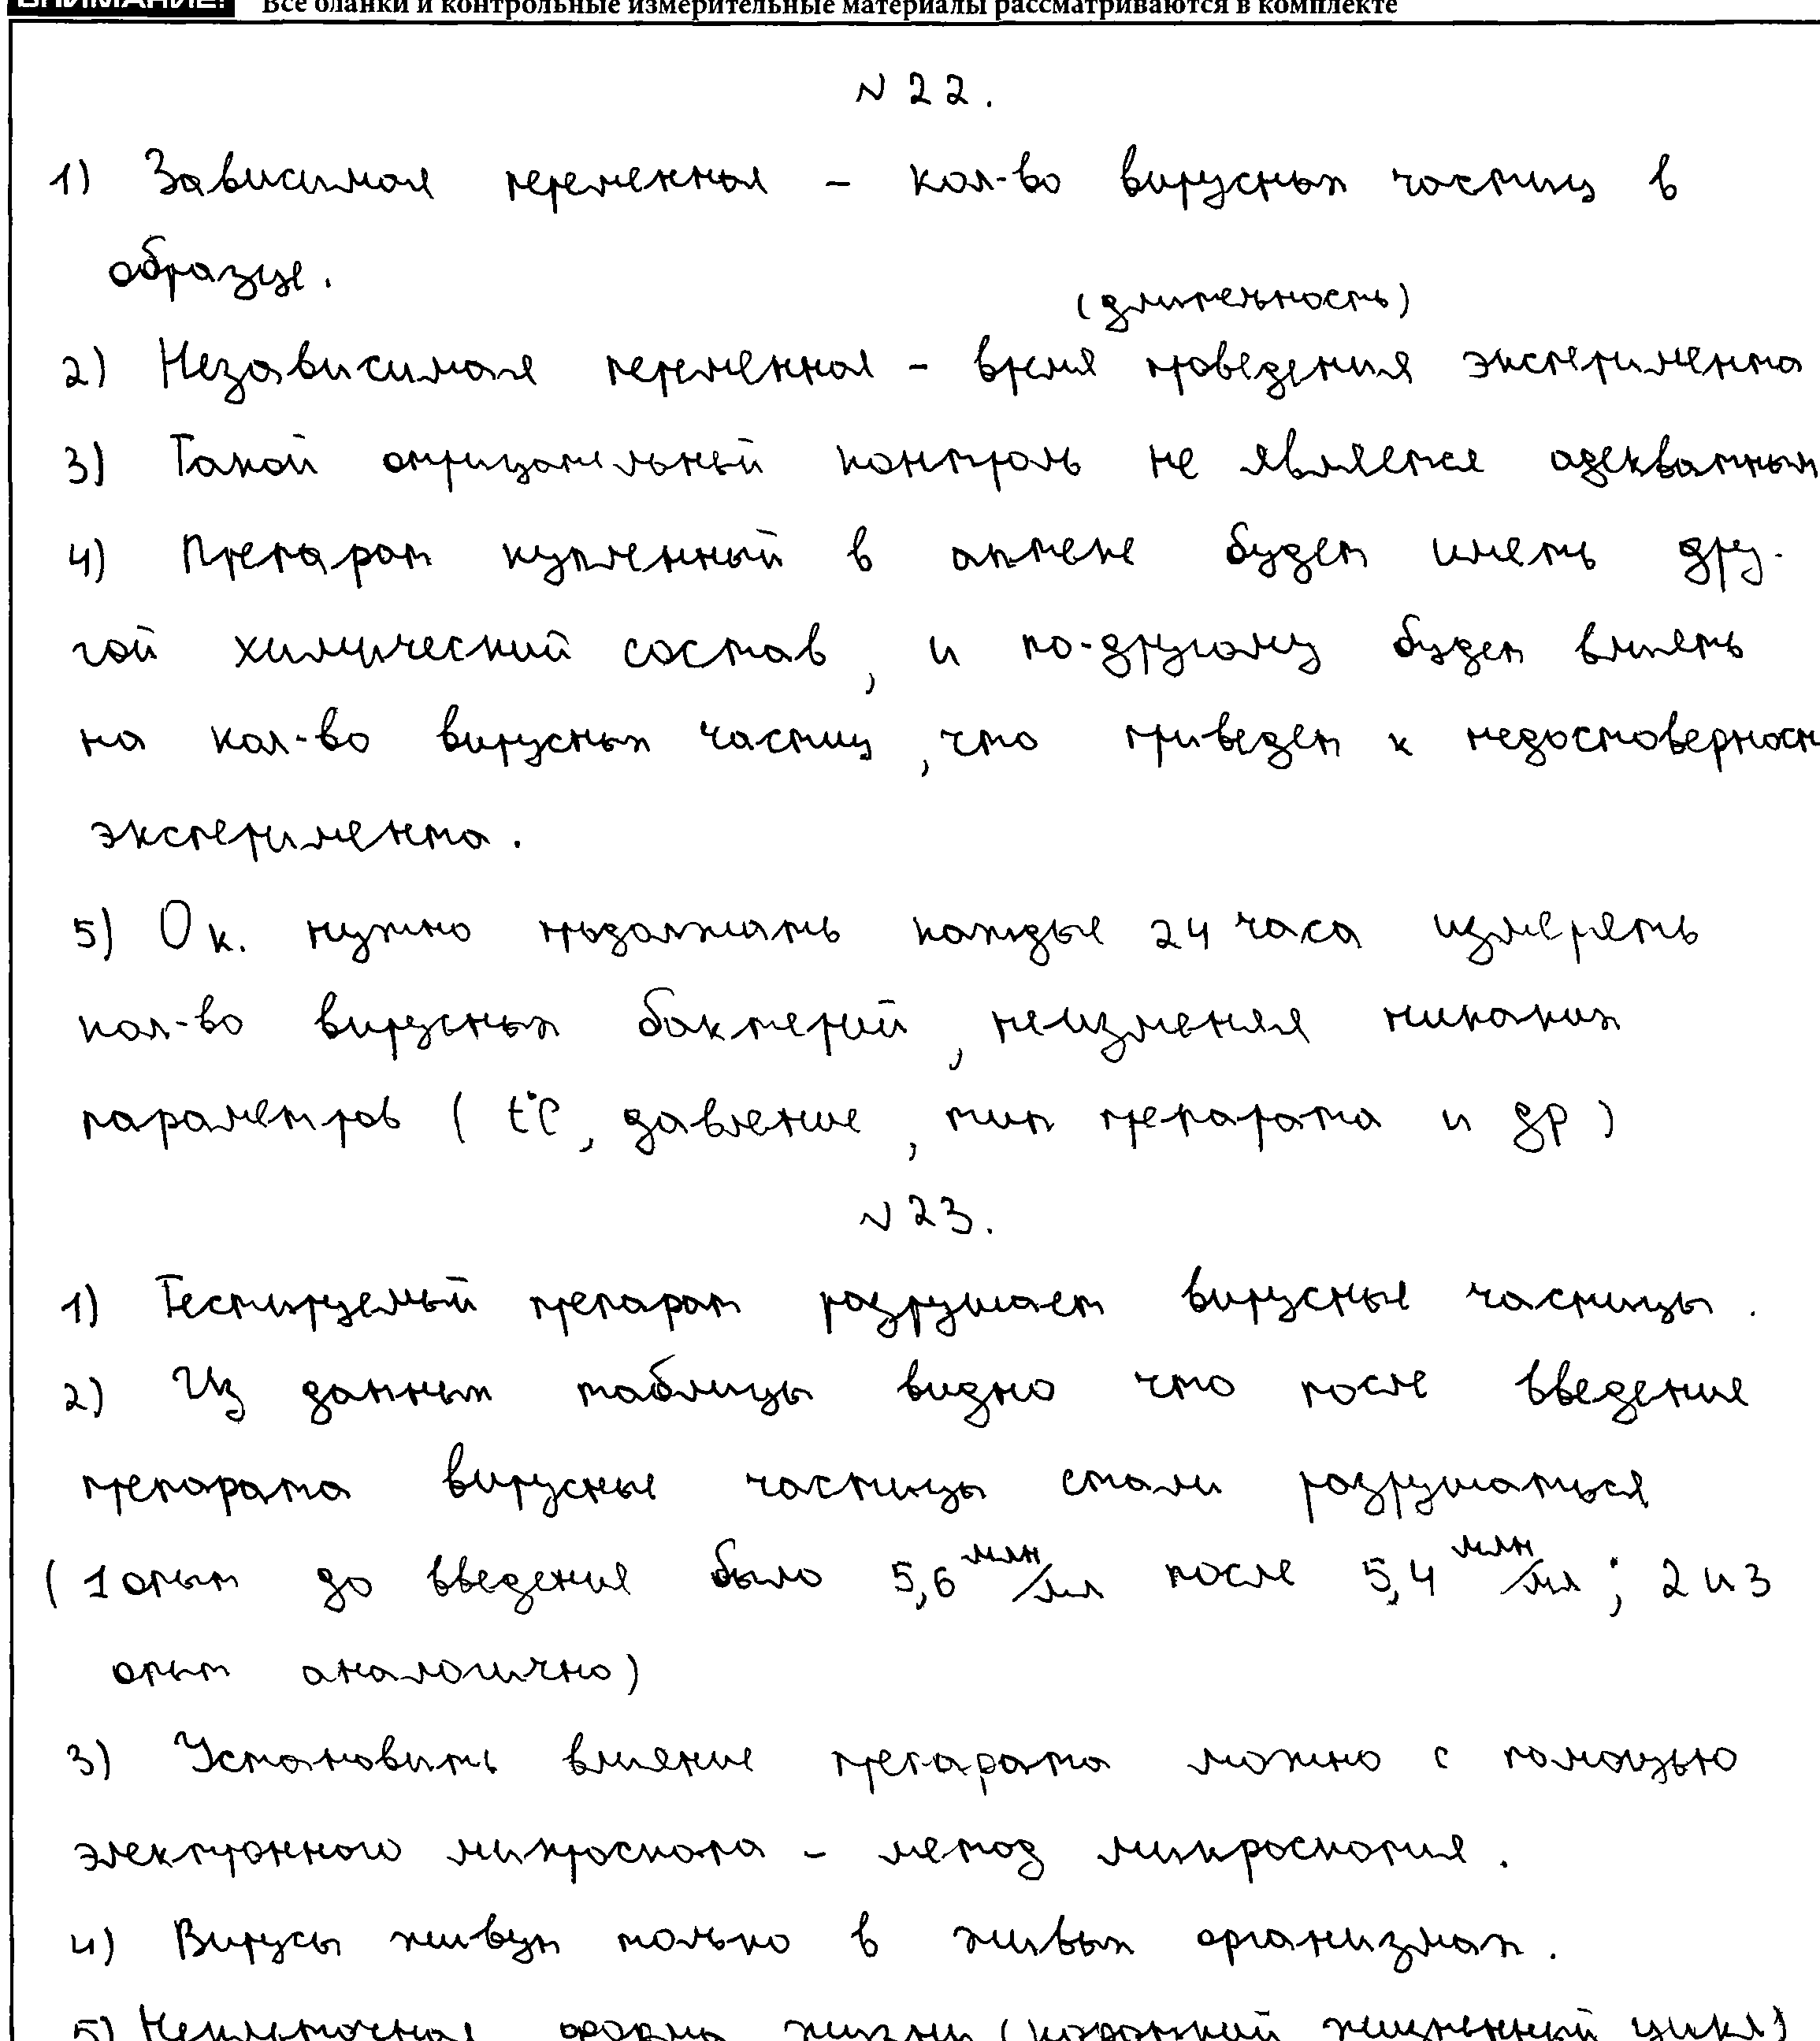 ВНИМАНИЕ! Все бланки и контрольные измерительные материалы рассматриваются в комплекте
N 22.
1) Зависимая переменная - кол-во вирусных частиц в
образце.
(длительность)
2) Независимая переменная - время проведения эксперимента
3) Такой отрицательный контроль не является адекватным
4) Препарат купленный в аптеке будет иметь дру-
гой химический состав, и по-другому будет влиять
на кол-во вирусных частиц, что приведет к недостоверност
эксперимента.
5) О к. нужно продолжать каждые 24 часа измерять
кол-во вирусных бактерий, неизменяя никаких
параметров (t°C, давление, тип препарата и др)
N 23.
1) Тестируемый препарат разрушает вирусные частицы.
2) Из данных таблицы видно что после введение
препарата вирусные частицы стали разрушаться
(1 опыт до введения было 5,6 млн/мл после 5,4 млн/мл; 2 и 3
опыт аналогично)
3) Установить влияние препарата можно с помощью
электронного микроскопа - метод микроскопия.
4) Вирусы живут только в живых организмах.
5) Неклеточная форма жизни (короткий жизненный цикл)